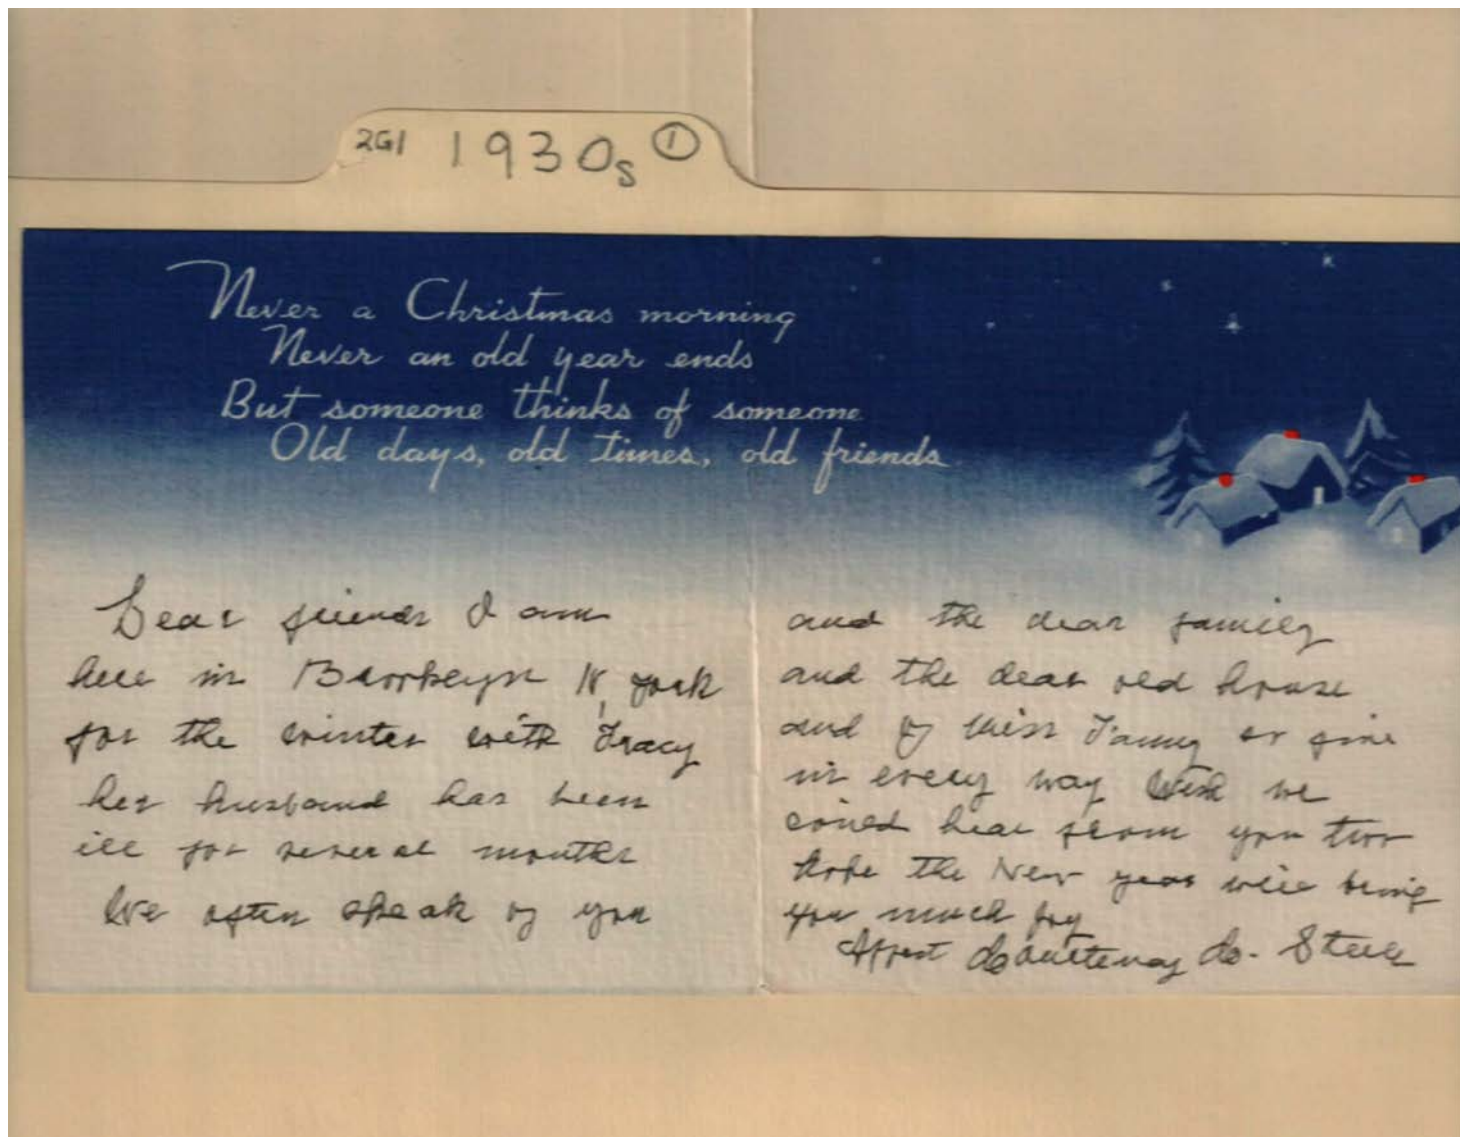 2G1 1930s 1
Never a Christmas morning
Never an old year ends
But someone thinks of someone
Old days, old times, old friends
Dear friends I am
here in Brooklyn N, york
for the winter with Tracy
her husband has been
ill for several months
We often speak of you
and the dear family
and the dear old house
and of Miss Fanny so fine
in every way Wish we
could hear from you two
hope the New year will bring
you much joy
Affect Courtenay